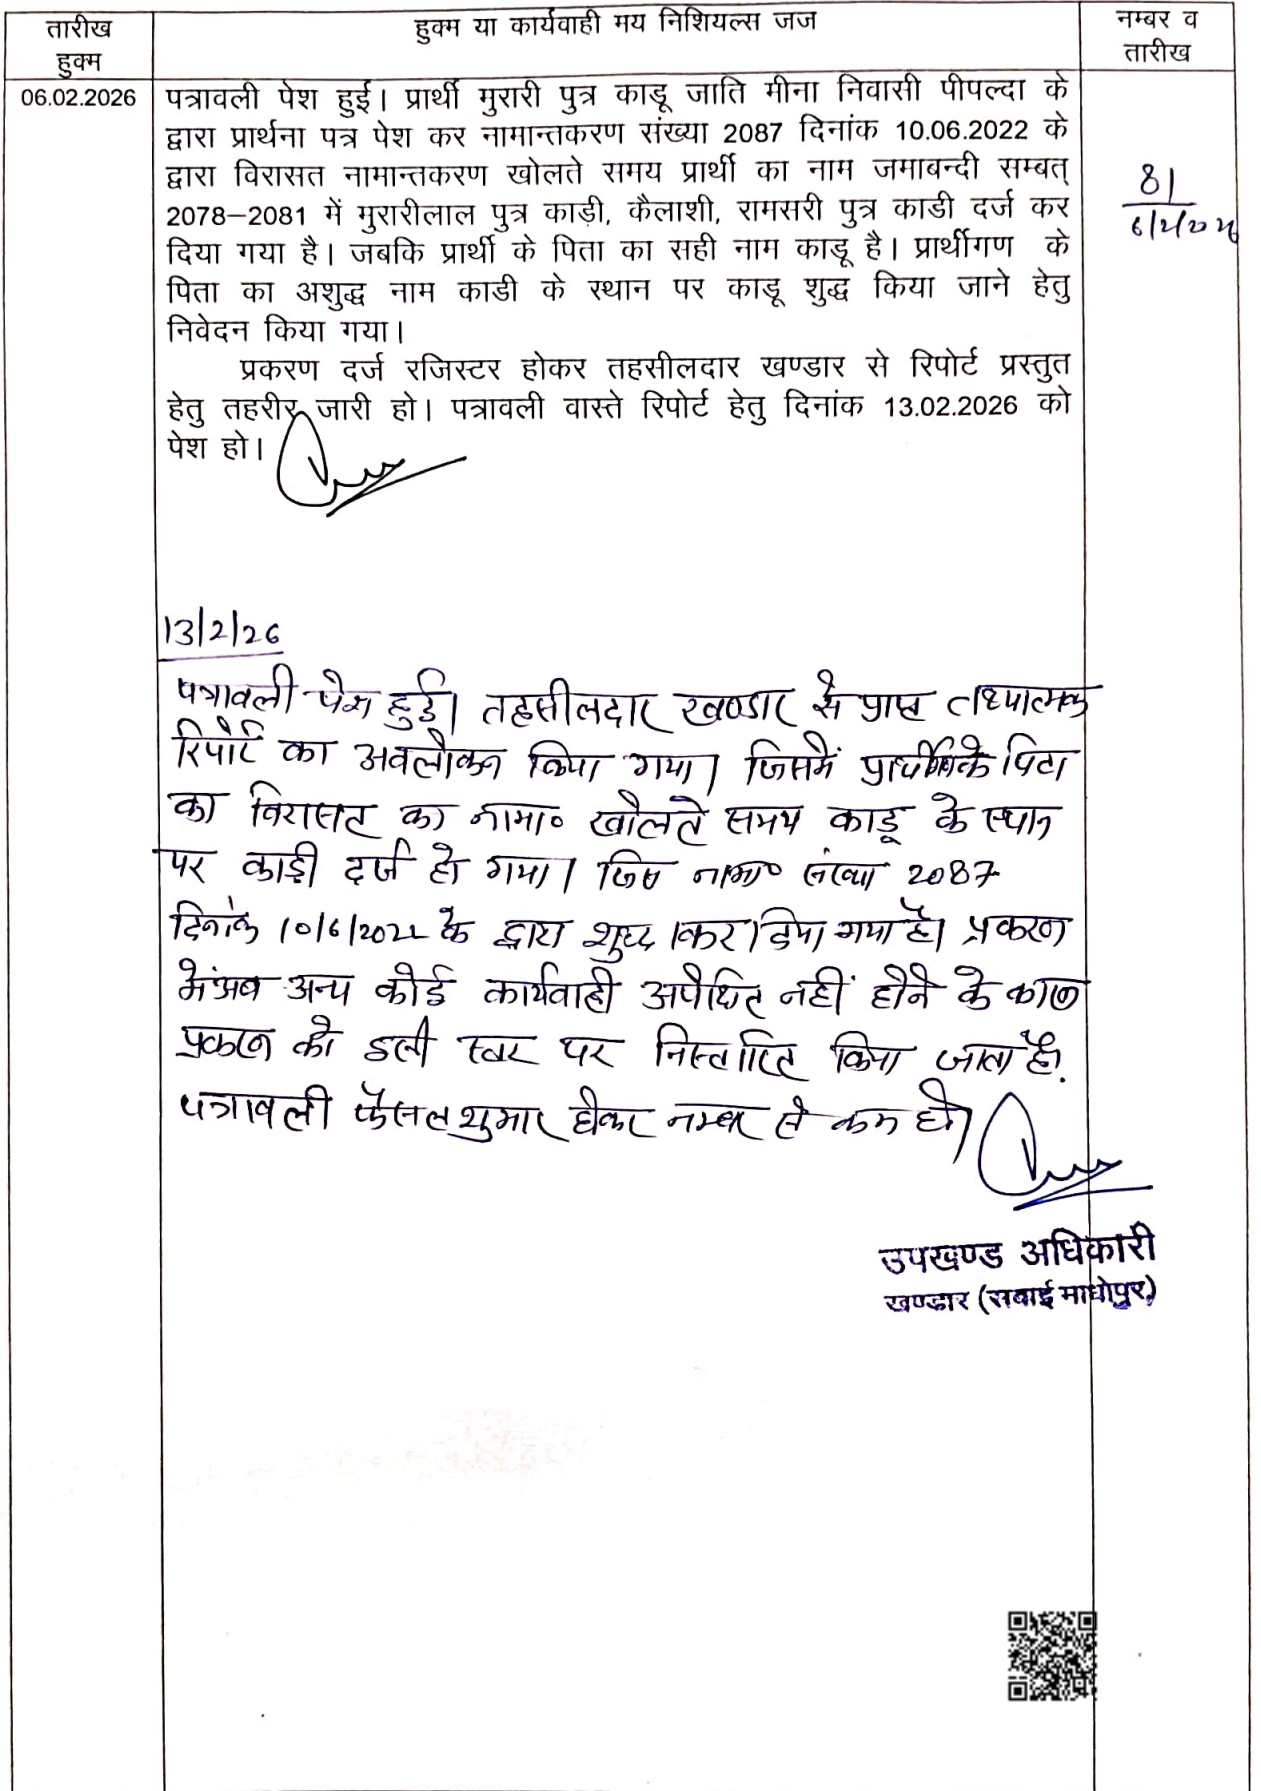 तारीख हुक्म
हुक्म या कार्यवाही मय निशियल्स जज
नम्बर व तारीख
06.02.2026
पत्रावली पेश हुई। प्रार्थी मुरारी पुत्र काडू जाति मीना निवासी पीपल्दा के
द्वारा प्रार्थना पत्र पेश कर नामान्तकरण संख्या 2087 दिनांक 10.06.2022 के
द्वारा विरासत नामान्तकरण खोलते समय प्रार्थी का नाम जमाबन्दी सम्बत्
2078–2081 में मुरारीलाल पुत्र काड़ी, कैलाशी, रामसरी पुत्र काडी दर्ज कर
दिया गया है। जबकि प्रार्थी के पिता का सही नाम काडू है। प्रार्थीगण के
पिता का अशुद्ध नाम काडी के स्थान पर काडू शुद्ध किया जाने हेतु
निवेदन किया गया।
प्रकरण दर्ज रजिस्टर होकर तहसीलदार खण्डार से रिपोर्ट प्रस्तुत
हेतु तहरीर जारी हो। पत्रावली वास्ते रिपोर्ट हेतु दिनांक 13.02.2026 को
पेश हो।
81
6/2/2026
13/2/26
पत्रावली पेश हुई। तहसीलदार खण्डार से प्राप्त तथ्यात्मक
रिपोर्ट का अवलोकन किया गया। जिसमें प्रार्थी के पिता
का विरासत का नामा० खोलते समय काडू के स्थान
पर काड़ी दर्ज हो गया। जिस नामा० संख्या 2087
दिनांक 10/6/2022 के द्वारा शुद्ध कर दिया गया है। प्रकरण
में अब अन्य कोई कार्यवाही अपेक्षित नहीं होने के कारण
प्रकरण को इसी स्तर पर निस्तारित किया जाता है।
पत्रावली फैसल शुमार होकर नम्बर से कम हो।
उपखण्ड अधिकारी
खण्डार (सवाई माधोपुर)